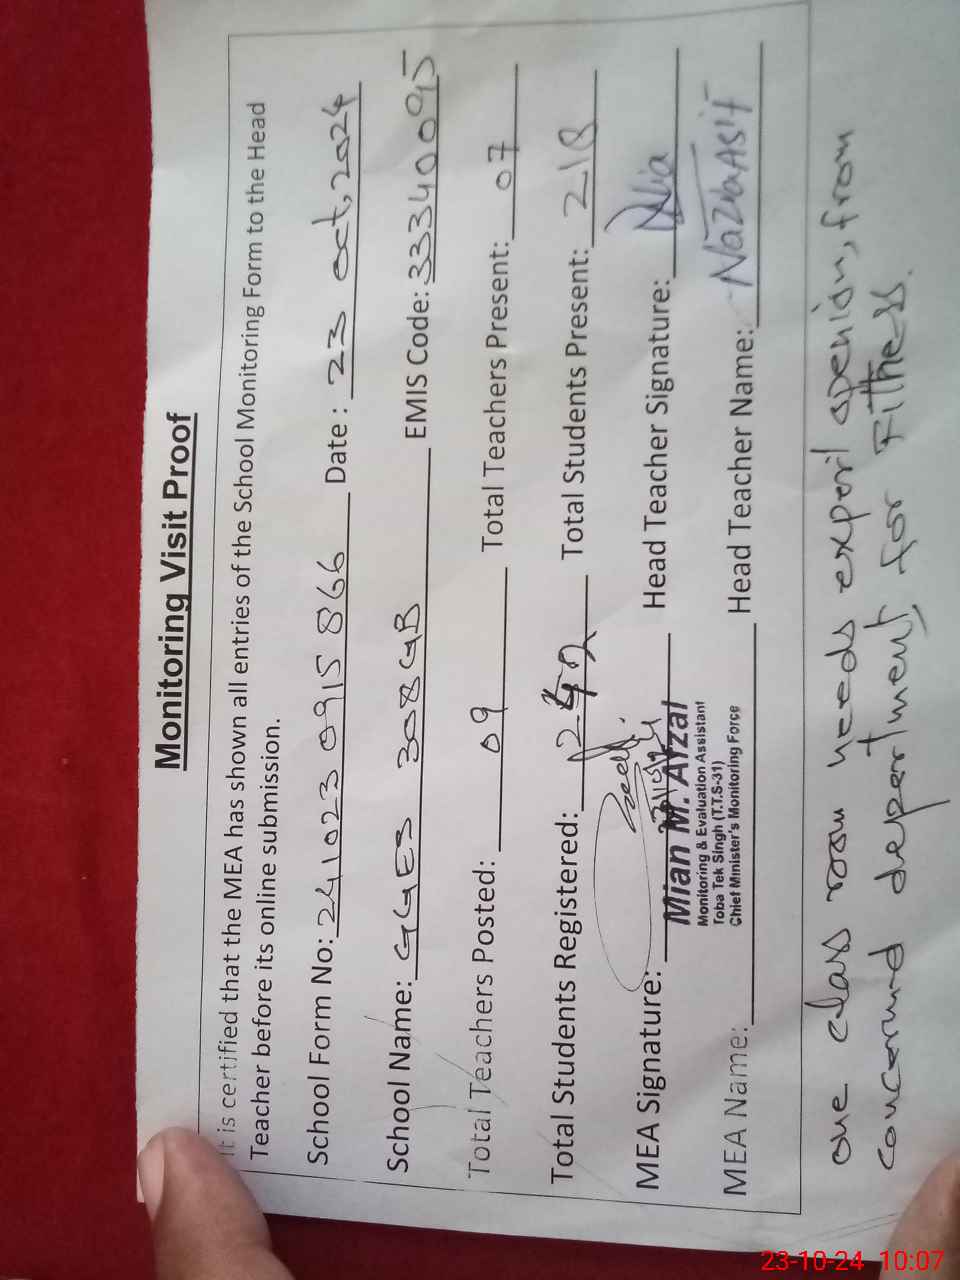 Monitoring Visit Proof
It is certified that the MEA has shown all entries of the School Monitoring Form to the Head
Teacher before its online submission.
School Form No: 241023 0915 866 Date : 23 oct, 2024
School Name: GGES 308 GB EMIS Code: 33340095
Total Teachers Posted: 09 Total Teachers Present: 07
Total Students Registered: Total Students Present: 218
MEA Signature: Head Teacher Signature: Alia
Mian M. Afzal
Monitoring & Evaluation Assistant
Toba Tek Singh (T.T.S-31)
Chief Minister's Monitoring Force
MEA Name: Head Teacher Name: Nazia Asif
one class room needs expert openion, from
concerned department, for Fitness.
23-10-24 10:07